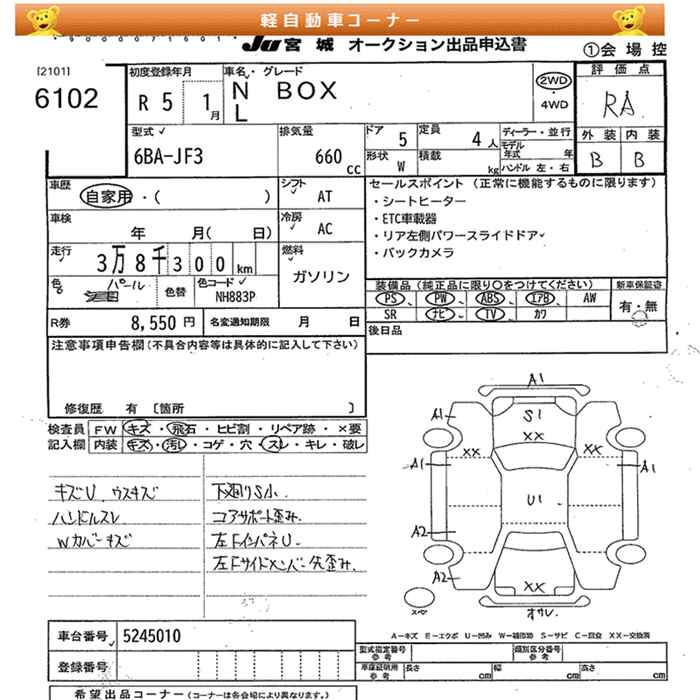 軽自動車コーナー
JU 宮城 オークション出品申込書
①会場控
[2101]
6102
初度登録年月
R5 1月
車名・グレード
N BOX
L
2WD
・4WD
評価点
RA
外装 内装
B B
型式
6BA-JF3
排気量
660 cc
ドア 5
定員 4人
形状 W
積載 kg
ディーラー・並行
モデル年式 年
ハンドル 左・右
車歴
自家用・( )
シフト
AT
車検
年 月( 日)
冷房
AC
走行
3万8千300km
燃料
ガソリン
色
パール
色替
色コード
NH883P
R券
8,550円
名変通知期限 月 日
セールスポイント(正常に機能するものに限ります)
・シートヒーター
・ETC車載器
・リア左側パワースライドドア
・バックカメラ
装備品(純正品に限り○をつけてください)
新車保証書
PS PW ABS エアB AW
SR ナビ TV カワ
有・無
後日品
注意事項申告欄(不具合内容等は具体的に記入して下さい)
修復歴 有 〔箇所 〕
検査員 FW キズ・飛石・ヒビ割・リペア跡・×要
記入欄 内装 キズ・汚レ・コゲ・穴・スレ・キレ・破レ
キズU、ウスキズ
ハンドルスレ
Wカバーキズ
下廻りS小
コアサポート歪み
左FインパネU
左Fサイドメンバー先歪み
A1
A1
S1
XX
XX
XX
A1
A1
U1
A2
A2
XX
オサレ
A-キズ E-エクボ U-凹み W-補修跡 S-サビ C-腐食 XX-交換済
車台番号 5245010
登録番号
型式指定番号
参考
類別区分番号
参考
車庫証明用
参考
長さ cm
幅 cm
高さ cm
希望出品コーナー(コーナーは各会場により異なります。)